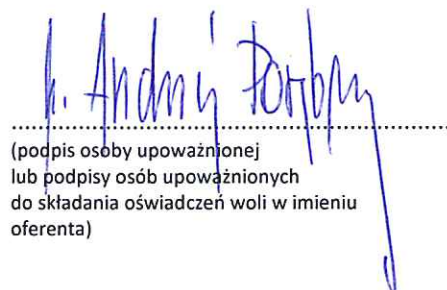 h. Andrzej
....................................................................
(podpis osoby upoważnionej
lub podpisy osób upoważnionych
do składania oświadczeń woli w imieniu
oferenta)